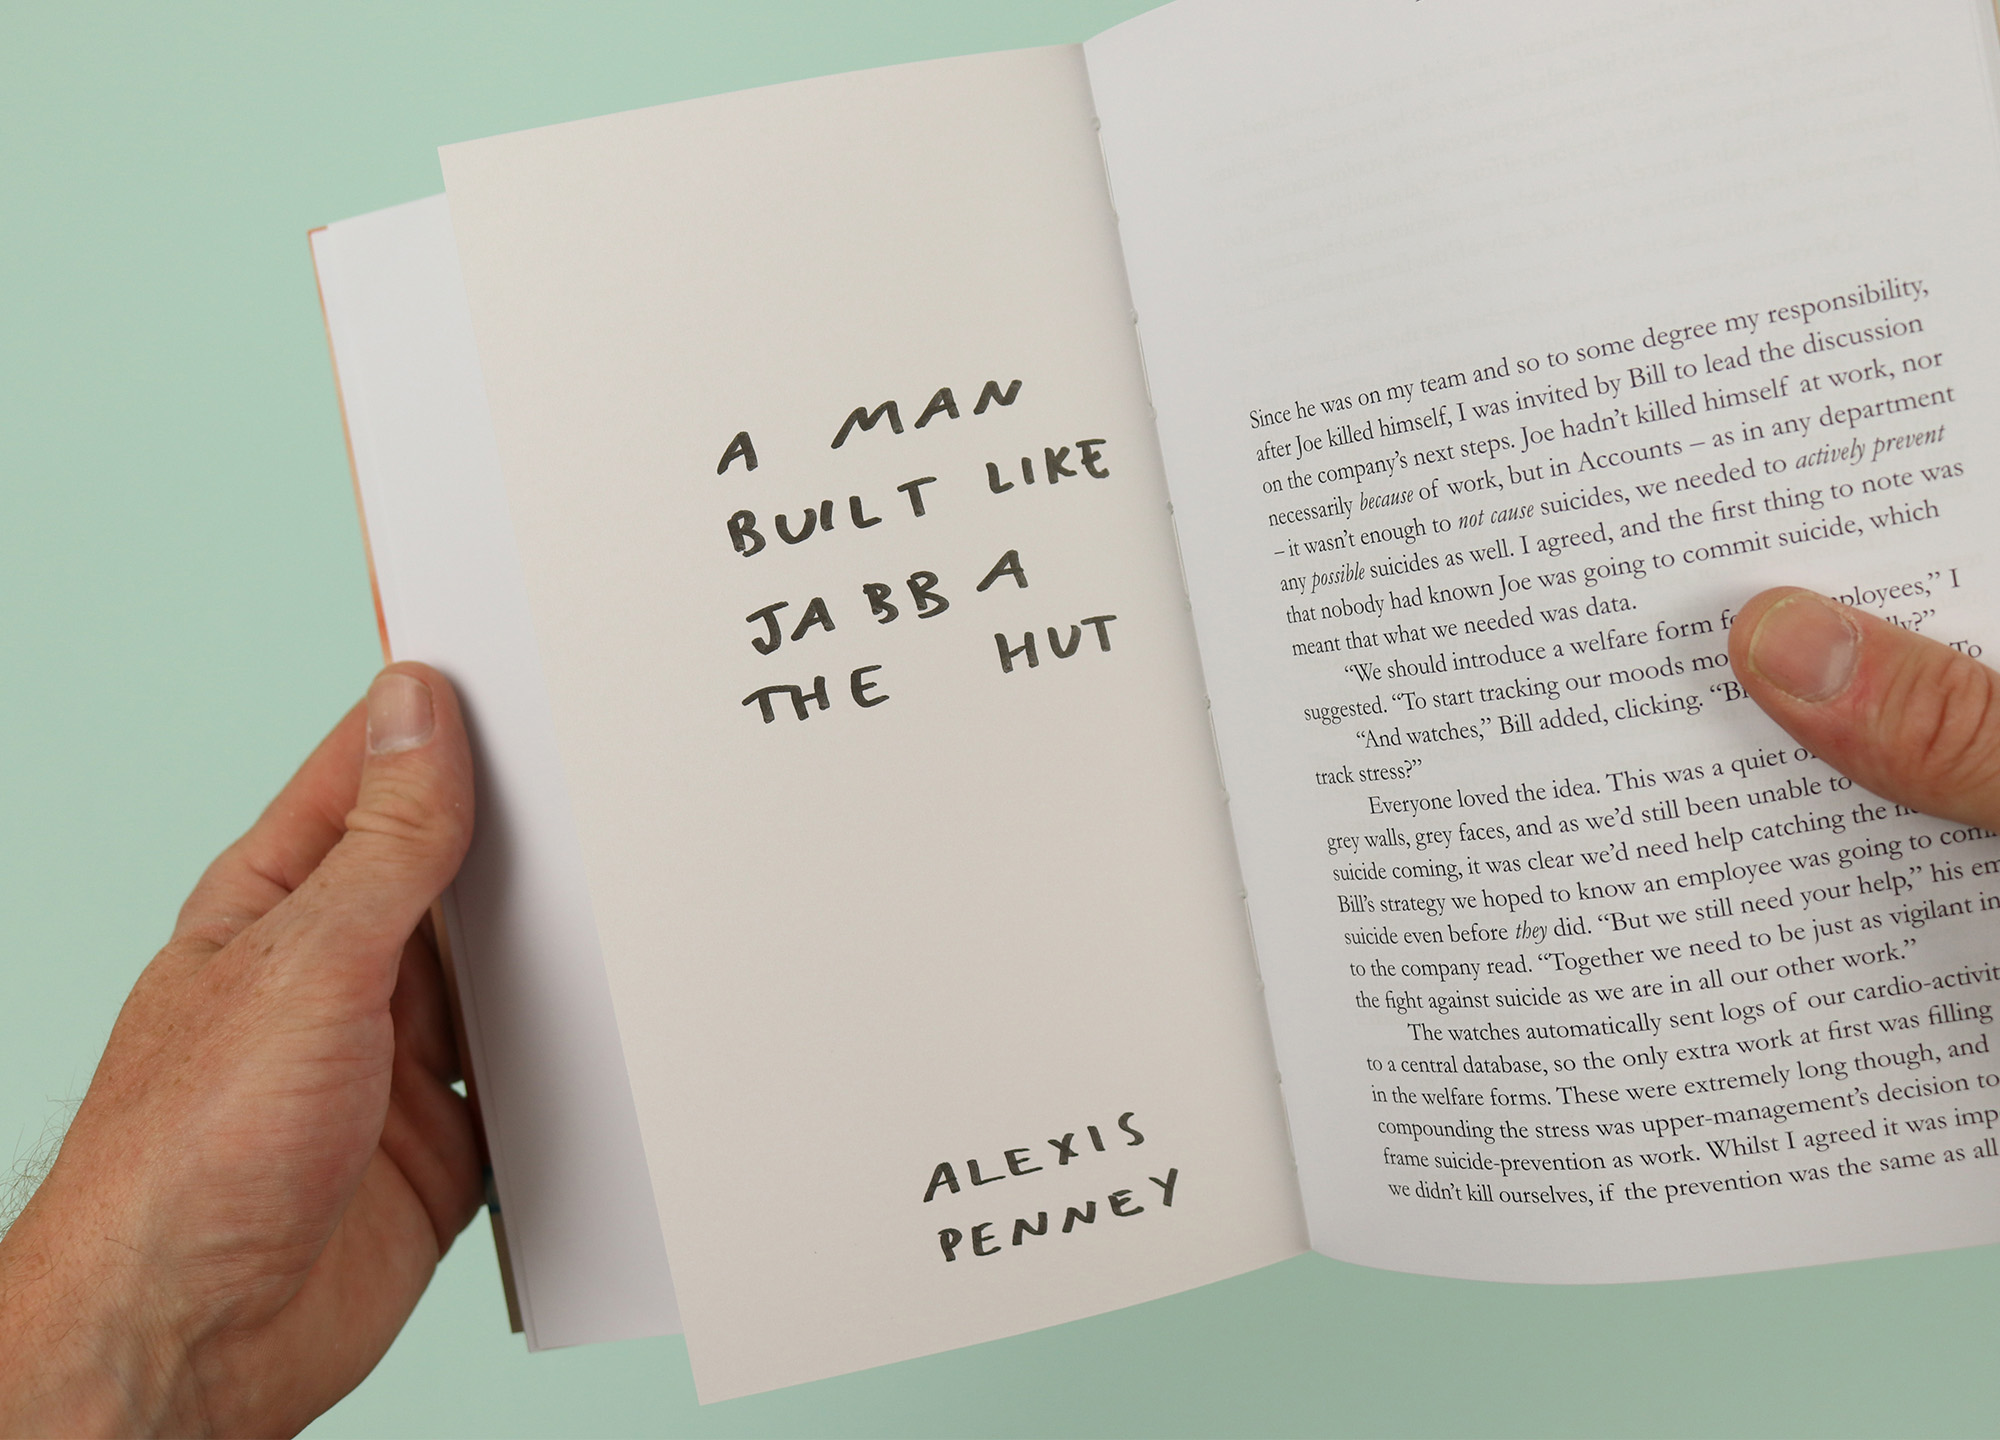 A MAN
BUILT LIKE
JABBA
THE HUT
ALEXIS
PENNEY
Since he was on my team and so to some degree my responsibility,
after Joe killed himself, I was invited by Bill to lead the discussion
on the company's next steps. Joe hadn't killed himself at work, nor
necessarily because of work, but in Accounts – as in any department
– it wasn't enough to not cause suicides, we needed to actively prevent
any possible suicides as well. I agreed, and the first thing to note was
that nobody had known Joe was going to commit suicide, which
meant that what we needed was data.
“We should introduce a welfare form ployees,” I
suggested. “To start tracking our moods lly?”
“And watches,” Bill added, clicking. To
track stress?”
Everyone loved the idea. This was a quiet
grey walls, grey faces, and as we'd still been unable to
suicide coming, it was clear we'd need help catching the
Bill's strategy we hoped to know an employee was going to
suicide even before they did. “But we still need your help,” his
to the company read. “Together we need to be just as vigilant in
the fight against suicide as we are in all our other work.”
The watches automatically sent logs of our cardio-activit
to a central database, so the only extra work at first was filling
in the welfare forms. These were extremely long though, and
compounding the stress was upper-management's decision to
frame suicide-prevention as work. Whilst I agreed it was imp
we didn't kill ourselves, if the prevention was the same as all